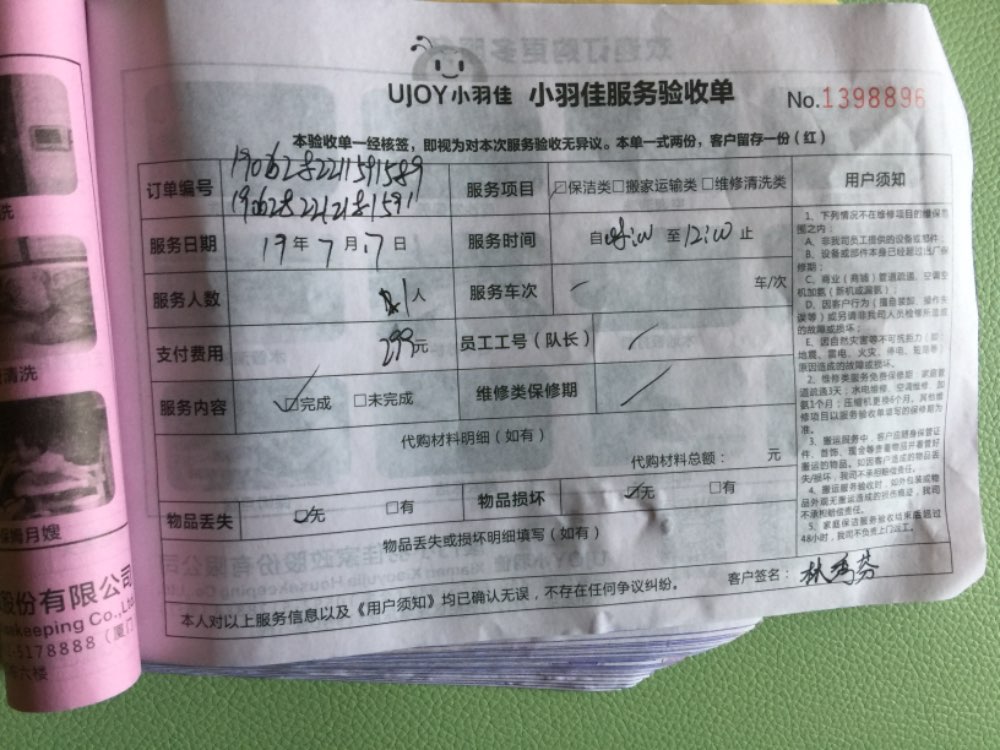 UJOY小羽佳 小羽佳服务验收单 No.1398896
本验收单一经核签，即视为对本次服务验收无异议。本单一式两份，客户留存一份（红）
订单编号 1906282211591589
1906282212181591
服务项目 □保洁类□搬家运输类□维修清洗类
用户须知
服务日期 19年7月17日 服务时间 自 至12:00止
服务人数 1人 服务车次 车/次
支付费用 299元 员工工号（队长）
服务内容 ☑完成 □未完成 维修类保修期
代购材料明细（如有）
代购材料总额： 元
物品丢失 ☑无 □有 物品损坏 ☑无 □有
物品丢失或损坏明细填写（如有）
本人对以上服务信息以及《用户须知》均已确认无误，不存在任何争议纠纷。 客户签名：林秀芬
1、下列情况不在维修项目的维保范
围之内：
A、非我司员工提供的设备或部件
B、设备或部件本身已经超过出厂保
修期；
C、商业（商铺）管道疏通、空调空
机加氨（新机或漏氨）；
D、因客户行为（擅自装卸、操作失
误等）或另请非我司人员检修所造成
的故障或损坏；
E、因自然灾害等不可抵拒力（如：
地震、雷电、火灾、停电、短路等）
原因造成的故障或损坏。
2、维修类服务免费保修期：家庭管
道疏通3天；水电维修、空调维修、加
氨1个月；压缩机更换6个月。其他维
修项目以服务验收单填写的保修期为
准。
3、搬运服务中，客户应随身保管证
件、首饰、现金等贵重物品并看管好
搬运的物品。如因客户造成的物品丢
失/损坏，我司不承担赔偿责任。
4、搬运服务验收时，如外包装或物
品外观无搬运造成的损伤痕迹，我司
不承担赔偿责任。
5、家庭保洁服务验收结束后超过
48小时，我司不负责上门返工。
洗
清洗
保姆月嫂
股份有限公司
usekeeping Co.,Ltd
-5178888（厦门
六楼